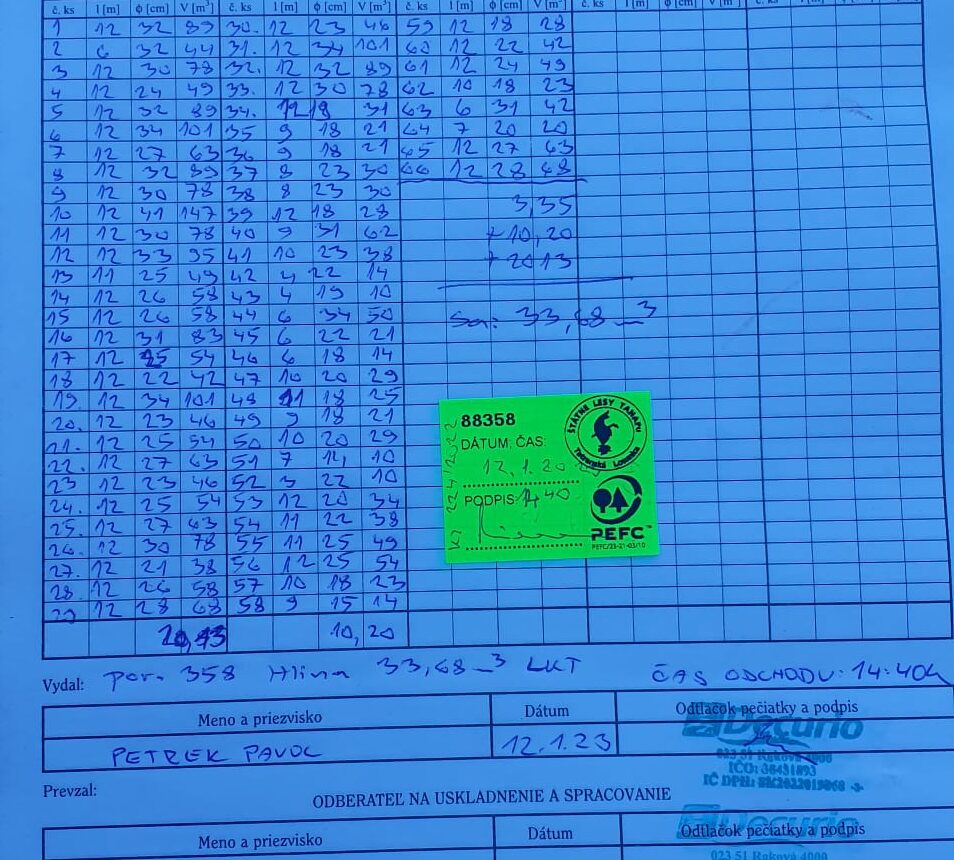 č. ks l [m] ϕ [cm] V [m³] č. ks l [m] ϕ [cm] V [m³] č. ks l [m] ϕ [cm] V [m³] č. ks l [m] ϕ [cm] V [m³] č. ks l [m] ϕ [cm]
1 12 32 89 30. 12 23 46 59 12 18 28
2 6 32 44 31. 12 34 101 60 12 22 42
3 12 30 78 32. 12 32 89 61 12 24 49
4 12 24 49 33. 12 30 78 62 10 18 23
5 12 32 89 34. 12 18 31 63 6 31 42
6 12 34 101 35 9 18 21 64 7 20 20
7 12 27 63 36 9 18 21 65 12 27 63
8 12 32 89 37 8 23 30 66 12 28 68
9 12 30 78 38 8 23 30
10 12 41 147 39 12 18 28 3,35
11 12 30 78 40 9 31 62 + 10,20
12 12 33 95 41 10 23 38 + 20 13
13 11 25 49 42 4 22 14
14 12 26 58 43 4 19 10
15 12 26 58 44 6 34 50 33,68
16 12 31 83 45 6 22 21
17 12 25 54 46 6 18 14
18 12 22 42 47 10 20 29
19. 12 34 101 48 11 18 25
20. 12 23 46 49 9 18 21
21. 12 25 54 50 10 20 29
22. 12 27 63 51 7 10
23 12 23 46 52 3 22 10
24. 12 25 54 53 12 20 34
25. 12 27 63 54 11 22 38
26. 12 30 78 55 11 25 49
27. 12 21 38 56 12 25 54
28. 12 26 58 57 10 18 23
29 12 28 68 58 9 15 14
20,13 10,20
88358
DÁTUM, ČAS:
12.1.20
PODPIS: 14 40
ŠTÁTNE LESY TANAPU
Tatranská Lomnica
PEFC™
PEFC/23-21-03/10
Vydal: por. 358 Hlina 33,68 m3 LKT ČAS ODCHODU: 14:40h
Meno a priezvisko Dátum Odtlačok pečiatky a podpis
PETREK PAVOL 12.1.23 Decurio
023 51 Raková 4000
IČO: 36431893
IČ DPH: SK2022019868
Prevzal:
ODBERATEĽ NA USKLADNENIE A SPRACOVANIE
Meno a priezvisko Dátum Odtlačok pečiatky a podpis
Decurio
023 51 Raková 4000